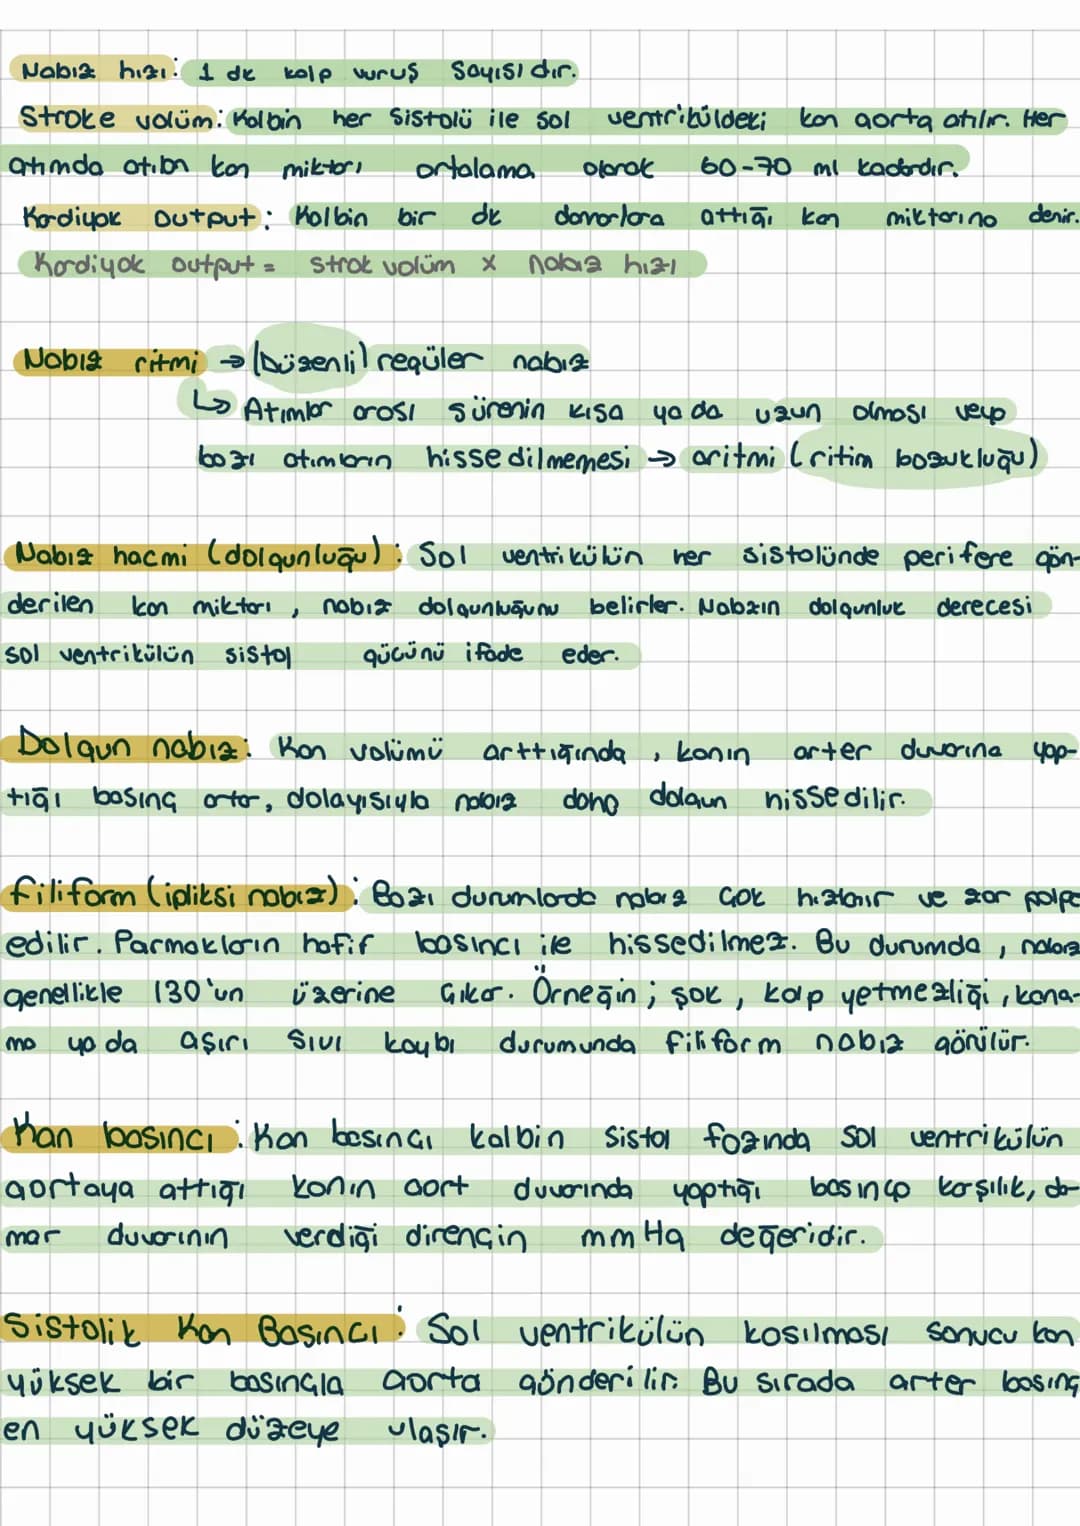 Nabız hızı: 1 dk kalp vuruş sayısıdır.
Stroke volüm: Kalbin her sistolü ile sol ventriküldeki kan aorta atılır. Her
atımda atılan kan miktarı ortalama olarak 60-70 ml kadardır.
Kardiyak Output: Kalbin bir dk damarlara attığı kan miktarına denir.
Kardiyak output = strok volüm x nabız hızı
Nabız ritmi → (Düzenli) regüler nabız
↳ Atımlar arası sürenin kısa ya da uzun olması veya
bazı atımların hissedilmemesi → aritmi (ritim bozukluğu)
Nabız hacmi (dolgunluğu): Sol ventrikülün her sistolünde perifere gön-
derilen kan miktarı, nabız dolgunluğunu belirler. Nabzın dolgunluk derecesi
sol ventrikülün sistol gücünü ifade eder.
Dolgun nabız: Kan volümü arttığında, kanın arter duvarına yap-
tığı basınç artar, dolayısıyla nabız daha dolgun hissedilir.
filiform (ipliksi nabız): Bazı durumlarda nabız çok hızlanır ve zor palpe
edilir. Parmakların hafif basıncı ile hissedilmez. Bu durumda, nabız
genellikle 130'un üzerine çıkar. Örneğin; şok, kalp yetmezliği, kana-
ma ya da aşırı sıvı kaybı durumunda filiform nabız görülür.
Kan basıncı: Kan basıncı kalbin sistol fazında sol ventrikülün
aortaya attığı kanın aort duvarında yaptığı basınca karşılık, da-
mar duvarının verdiği direncin mmHg değeridir.
Sistolik Kan Basıncı: Sol ventrikülün kasılması sonucu kan
yüksek bir basınçla aorta gönderilir. Bu sırada arter basınç
en yüksek düzeye ulaşır.